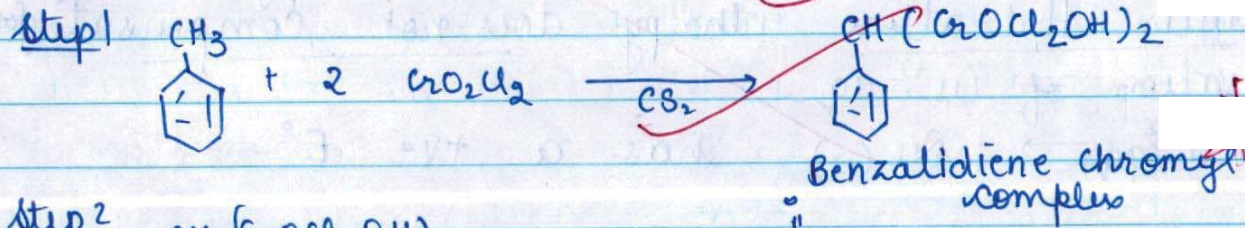 Step 1 CH3 CH(CrOCl2OH)2
+ 2 CrO2Cl2
CS2
Benzalidiene chromyl
complex
Step 2